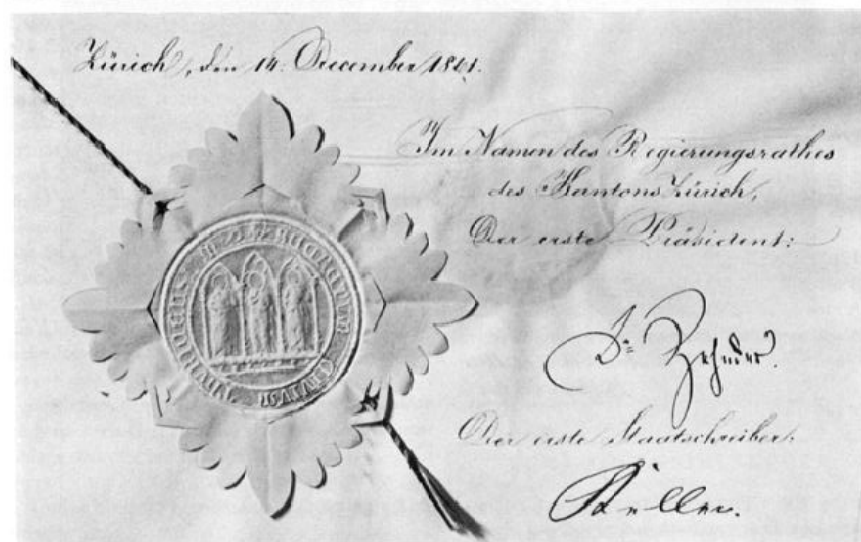 Zürich, den 14. December 1861.
Im Namen des Regierungsrathes
des Kantons Zürich,
Der erste Präsident:
Dr Zehnder.
Der erste Staatschreiber.
Keller.